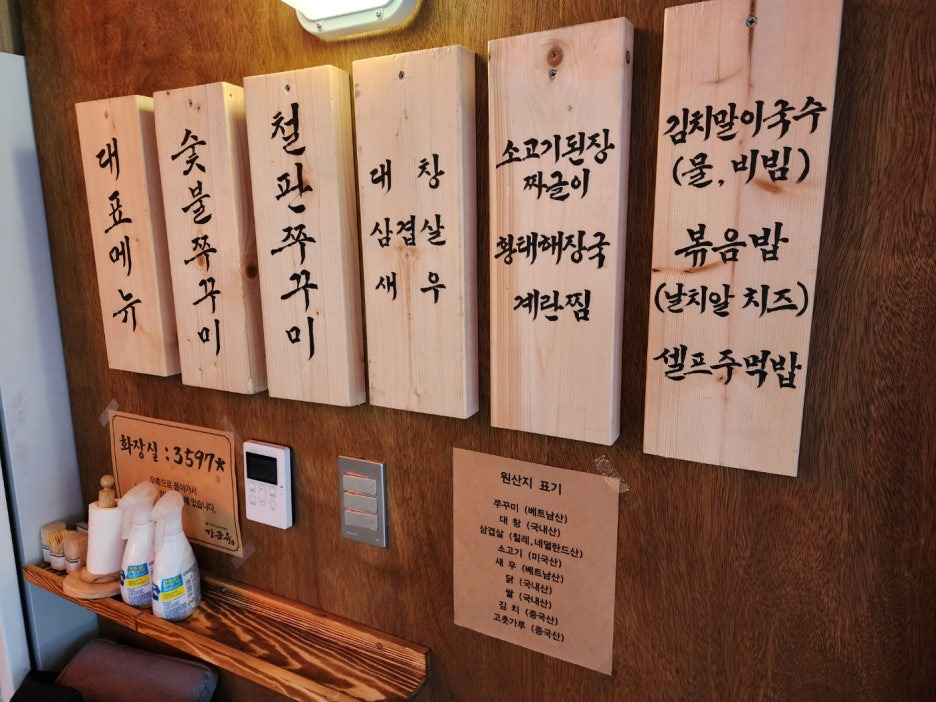 대표메뉴
숯불쭈꾸미
철판쭈꾸미
대창
삼겹살
새우
소고기된장
짜글이
황태해장국
계란찜
김치말이국수
(물, 비빔)
볶음밥
(날치알 치즈)
셀프주먹밥
화장실 : 3597*
우측으로 돌아가서
있습니다.
원산지 표기
쭈꾸미 (베트남산)
대 창 (국내산)
삼겹살 (칠레,네덜란드산)
소고기 (미국산)
새 우 (베트남산)
닭 (국내산)
쌀 (국내산)
김 치 (중국산)
고춧가루 (중국산)